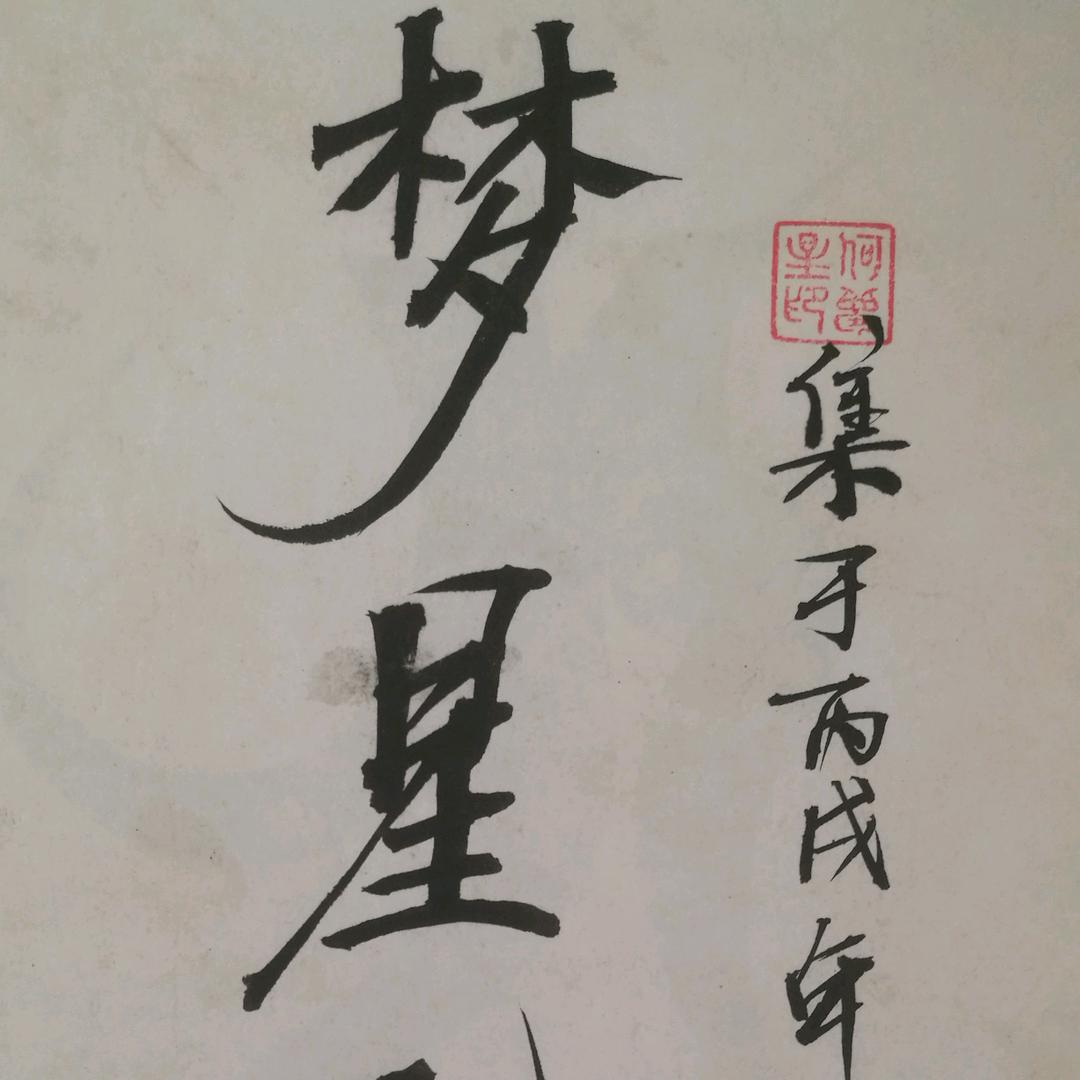 集于丙戌年
梦星
何留星印